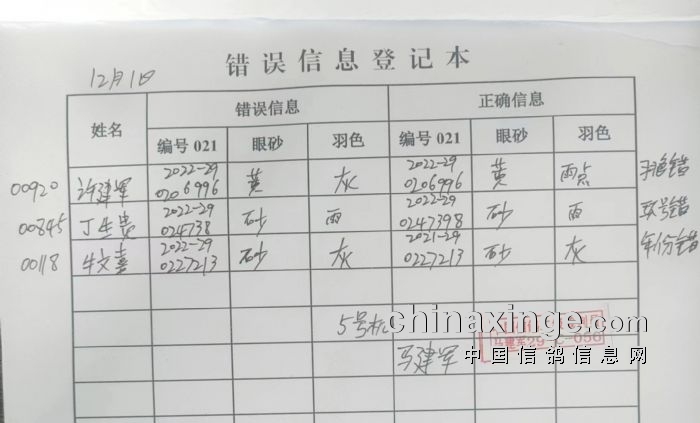 错误信息登记本
12月1日
姓名 错误信息 正确信息
编号 021 眼砂 羽色 编号 021 眼砂 羽色
00920 许建军 2022-29 0206996 黄 灰 2022-29 0206996 黄 雨点 羽色错
00845 丁生贵 2022-29 024738 砂 雨 2022-29 0247398 砂 雨 环号错
00118 牛文喜 2022-29 0227213 砂 灰 2021-29 0227213 砂 灰 年份错
5号机
chinaxinge.com
马建军
中国信鸽信息网